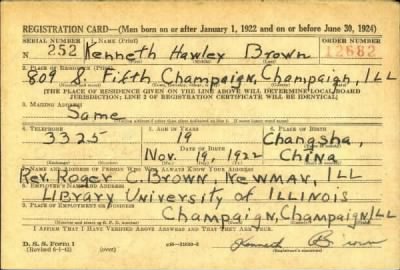 REGISTRATION CARD—(Men born on or after January 1, 1922 and on or before June 30, 1924)
SERIAL NUMBER 1. NAME (Print) ORDER NUMBER
N 252 Kenneth Hawley Brown 12682
2. PLACE OF RESIDENCE (Print)
809 S. Fifth Champaign, Champaign, Ill
[THE PLACE OF RESIDENCE GIVEN ON THE LINE ABOVE WILL DETERMINE LOCAL BOARD
JURISDICTION; LINE 2 OF REGISTRATION CERTIFICATE WILL BE IDENTICAL]
3. MAILING ADDRESS
Same
4. TELEPHONE 5. AGE IN YEARS 6. PLACE OF BIRTH
3325 19 Changsha,
DATE OF BIRTH
Nov. 19, 1922 China
7. NAME AND ADDRESS OF PERSON WHO WILL ALWAYS KNOW YOUR ADDRESS
Rev. Roger C. Brown, Newman, Ill
8. EMPLOYER'S NAME AND ADDRESS
Library University of Illinois
Champaign, Champaign Ill
I AFFIRM THAT I HAVE VERIFIED ABOVE ANSWERS AND THAT THEY ARE TRUE.
D. S. S. Form 1
(Revised 6-1-42) (over) Kenneth Brown